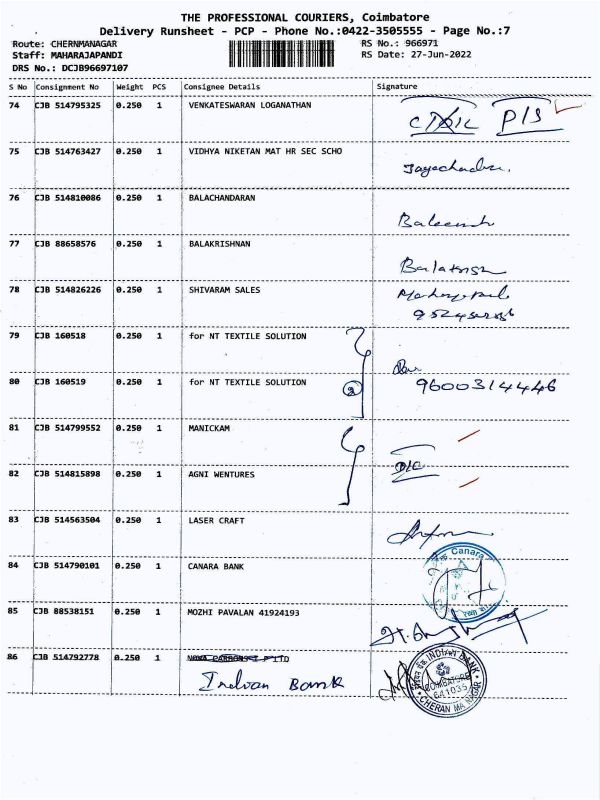 THE PROFESSIONAL COURIERS, Coimbatore
Delivery Runsheet - PCP - Phone No.:0422-3505555 - Page No.:7
Route: CHERNMANAGAR RS No.: 966971
Staff: MAHARAJAPANDI RS Date: 27-Jun-2022
DRS No.: DCJB96697107
S No Consignment No Weight PCS Consignee Details Signature
74 CJB 514795325 0.250 1 VENKATESWARAN LOGANATHAN
P/S
75 CJB 514763427 0.250 1 VIDHYA NIKETAN MAT HR SEC SCHO
76 CJB 514810086 0.250 1 BALACHANDARAN
77 CJB 88658576 0.250 1 BALAKRISHNAN
78 CJB 514826226 0.250 1 SHIVARAM SALES
79 CJB 160518 0.250 1 for NT TEXTILE SOLUTION
80 CJB 160519 0.250 1 for NT TEXTILE SOLUTION
2 9600314446
81 CJB 514799552 0.250 1 MANICKAM
82 CJB 514815898 0.250 1 AGNI WENTURES
D/C
83 CJB 514563504 0.250 1 LASER CRAFT
84 CJB 514790101 0.250 1 CANARA BANK
Canara
85 CJB 88538151 0.250 1 MOZHI PAVALAN 41924193
86 CJB 514792778 0.250 1
Indian Bank
INDIAN BANK
COIMBATORE
641035
CHERAN MA NAGAR